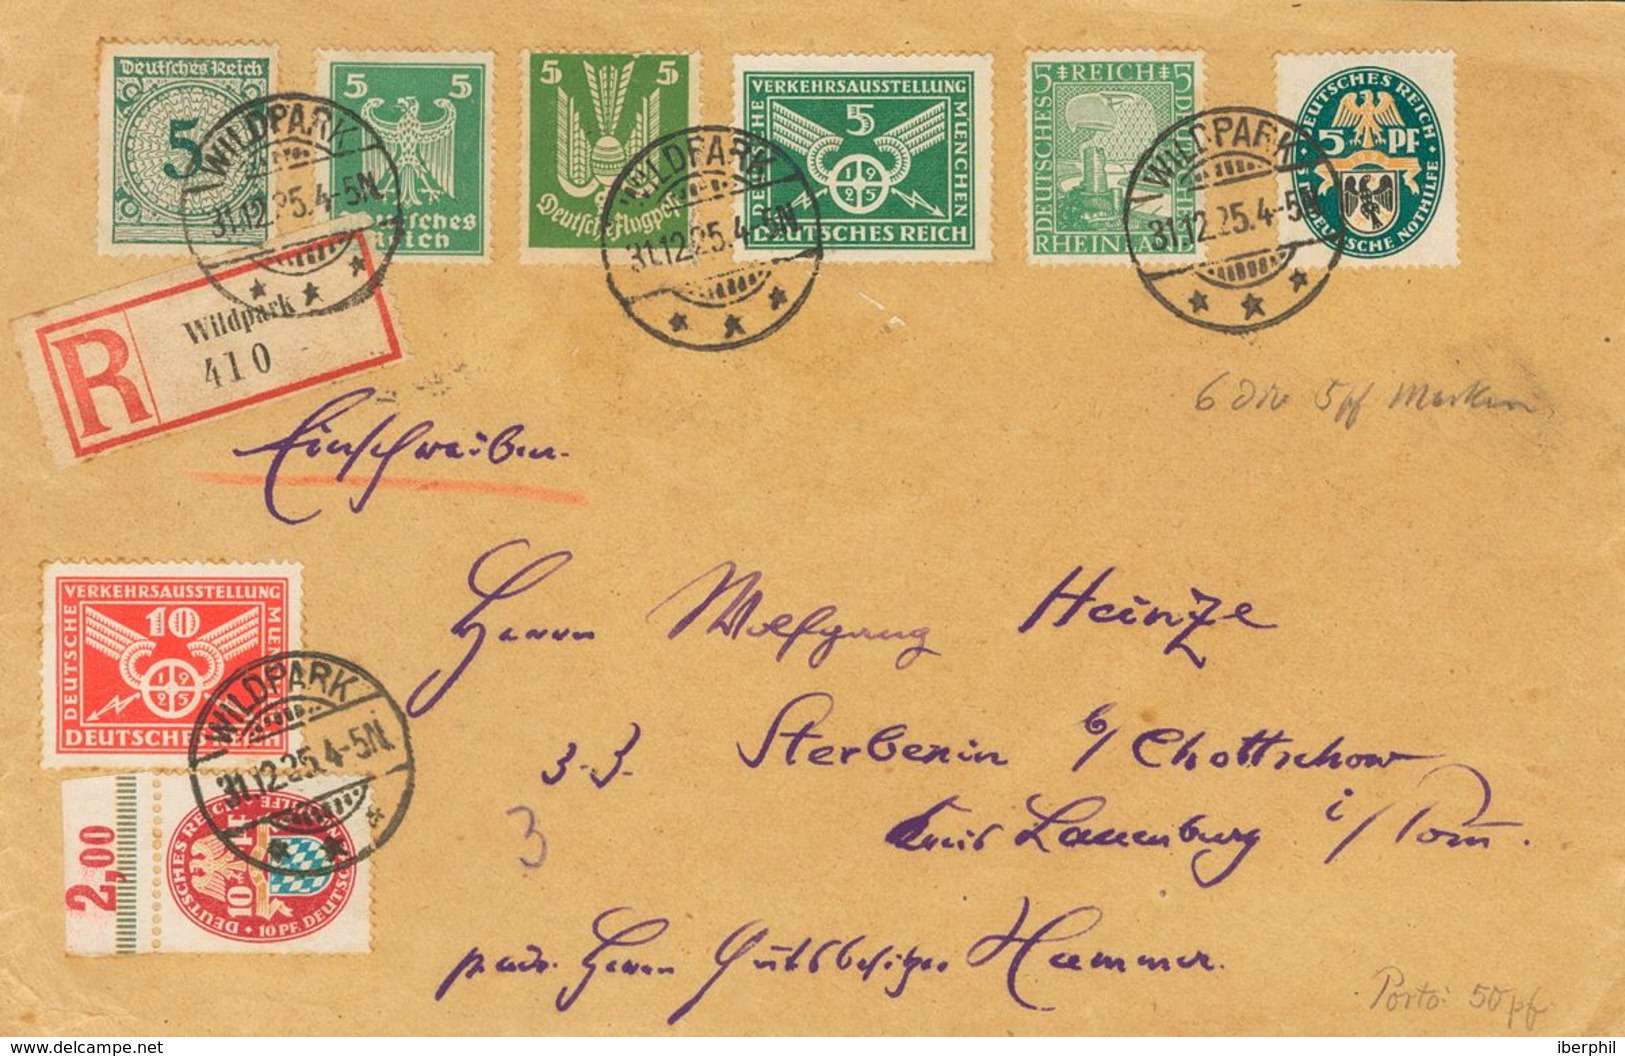 Deutsches Reich
5
5 5
Deutsches
Reich
5 5
Deutsche Flugpost
VERKEHRSAUSSTELLUNG
DEUTSCHE
5
MUENCHEN
1925
DEUTSCHES REICH
5 REICH 5
DEUTSCHES
RHEINLAND
DEUTSCHES REICH
5 PF
DEUTSCHE NOTHILFE
WILDPARK
31.12.25.4-5N.
WILDPARK
31.12.25.4-5N
WILDPARK
31.12.25.4-5N
R
Wildpark
410
6 5 pf Marken
Einschreiben.
VERKEHRSAUSSTELLUNG
DEUTSCHE
10
MUENCHEN
1925
DEUTSCHES REICH
WILDPARK
31.12.25.4-5N.
2,00
DEUTSCHES REICH
10 PF
10 PF. DEUTSCHE NOTHILFE
Herrn Wolfgang Heinze
z. Z. Sterbenin b/ Chottschow
3
Kreis Lauenburg i/ Pom.
p. adr. Herrn Gutsbesitzer Hammer.
Porto: 50 pf
delcampe.net
iberphil